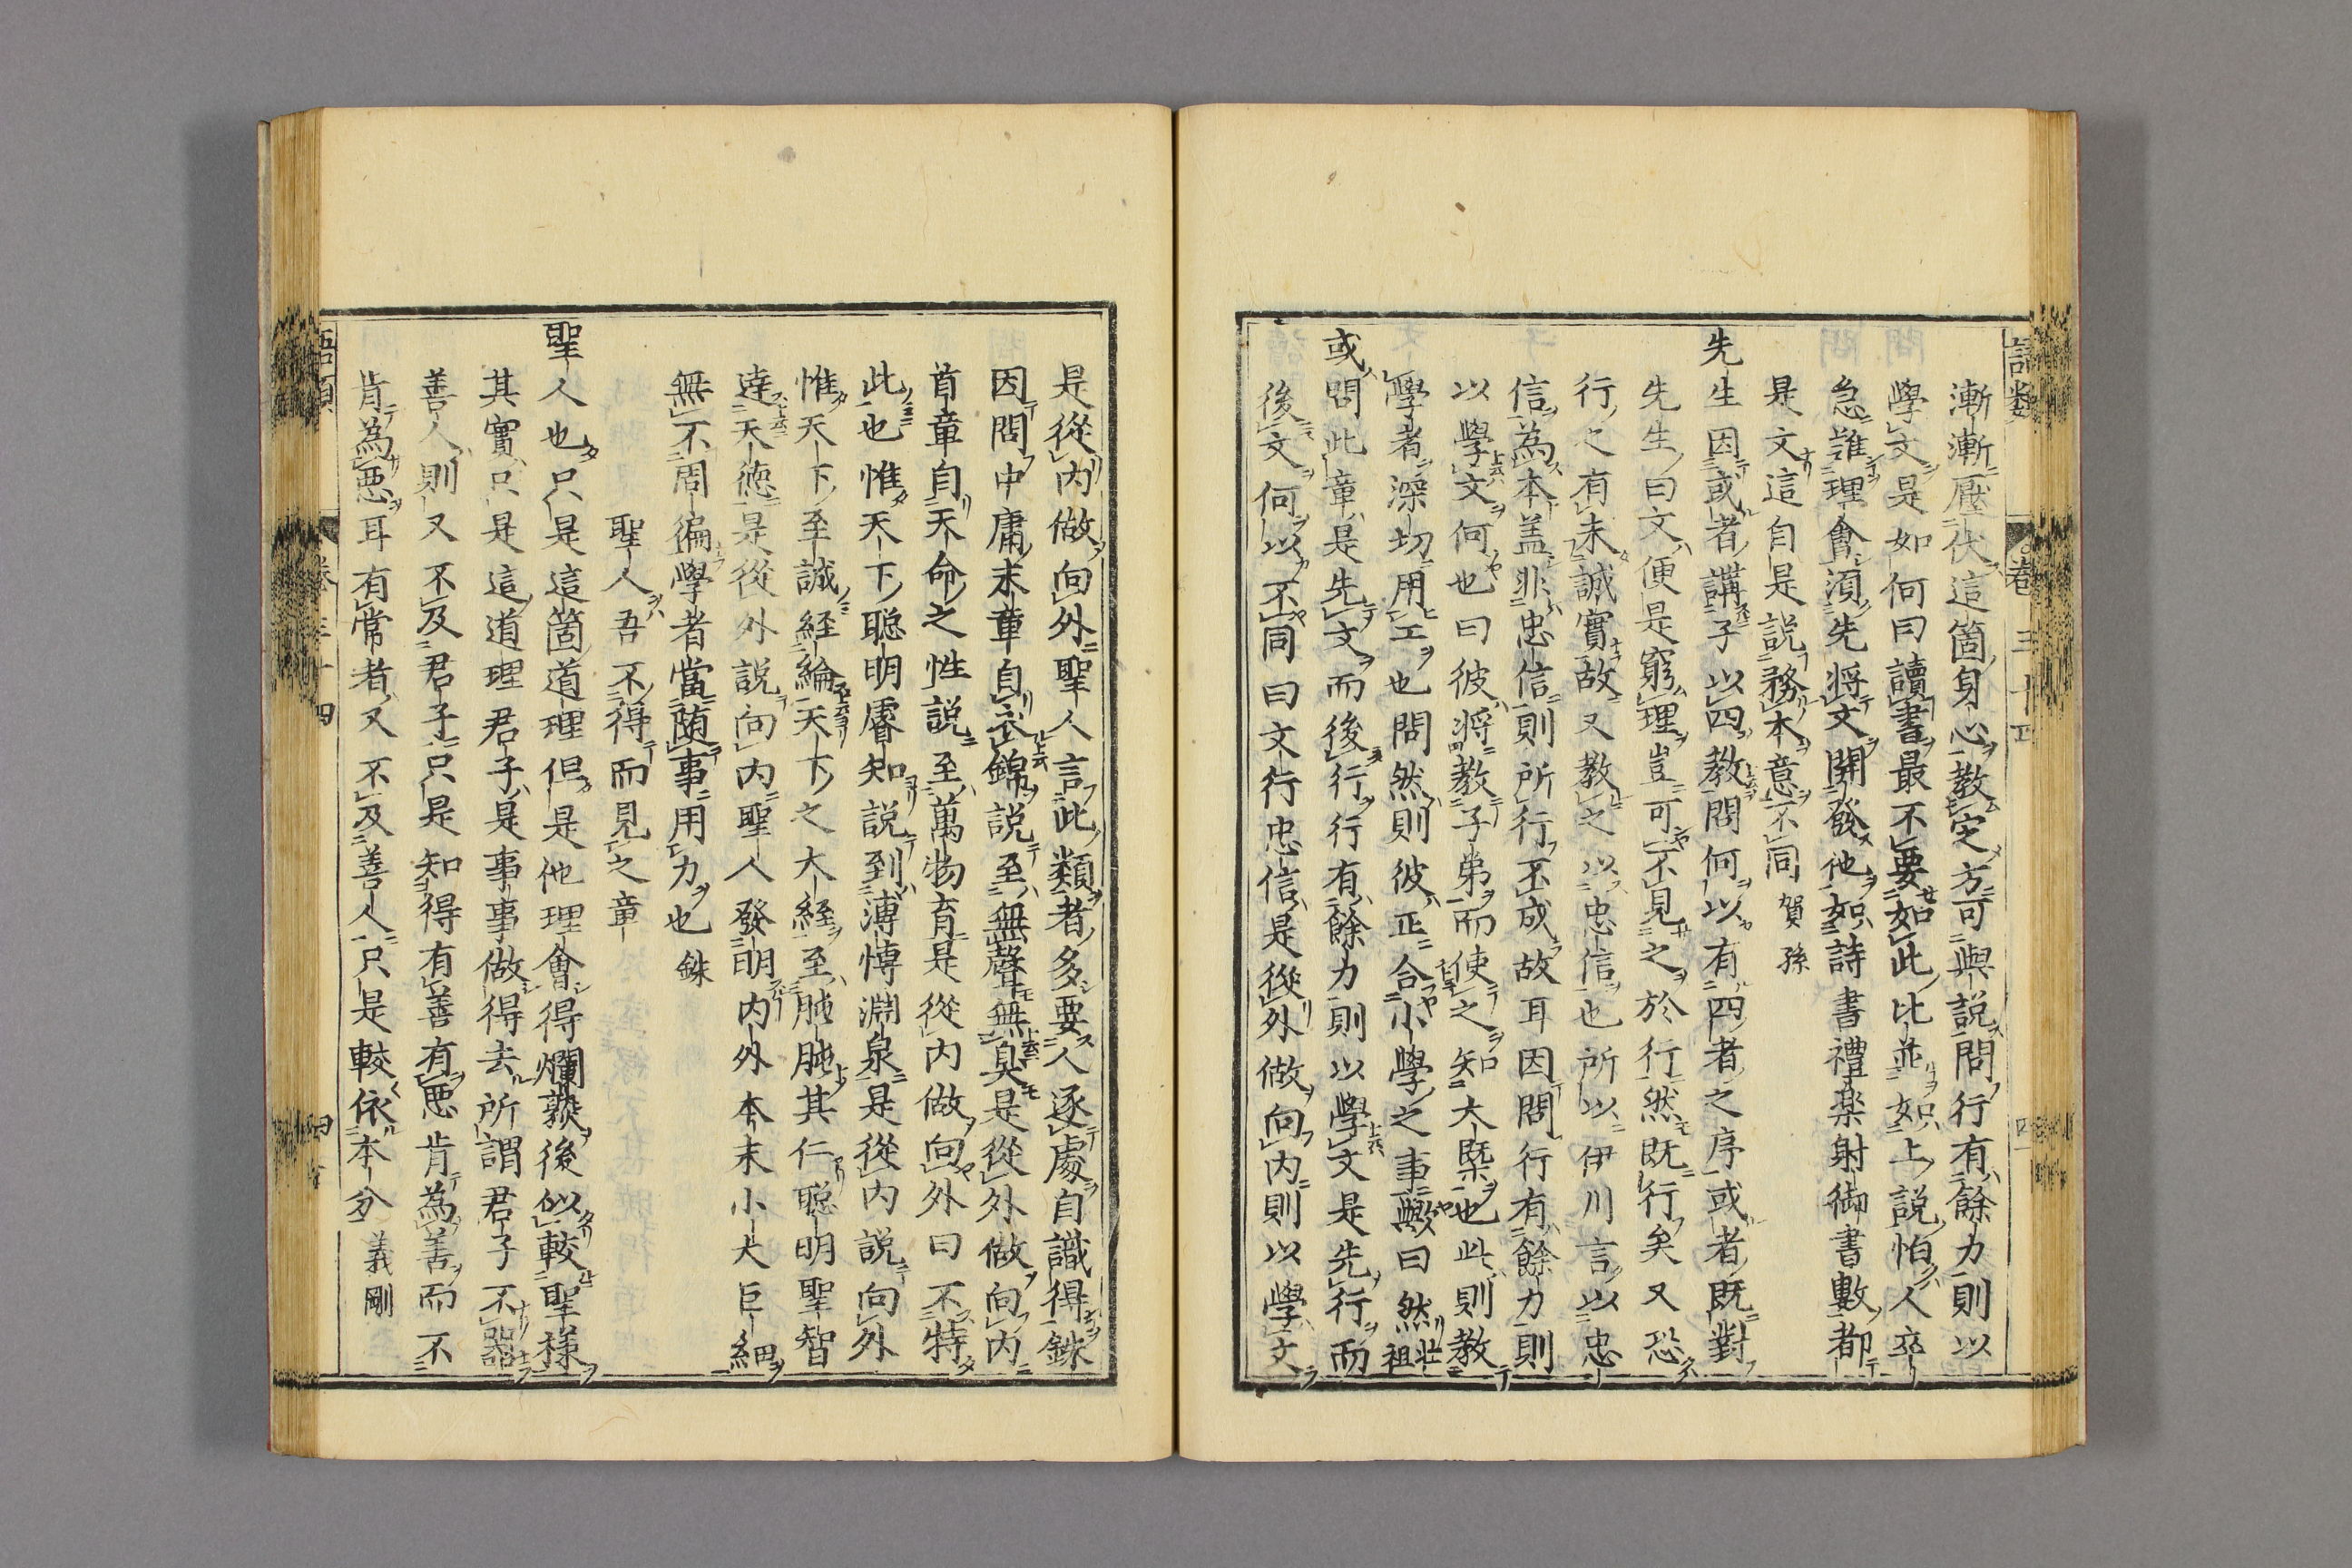 語類 卷三十四 四
漸漸壓伏這箇身心教定方可與説問行有餘力則以
學文是如何曰讀書最不要如此比並如上説怕人卒
急難理會須先將文開發他如詩書禮樂射御書數都
是文這自是説務本意不同 賀孫
先生因或者講子以四教問何以有四者之序或者既對
先生曰文便是窮理豈可不見之於行然既行矣又恐
行之有未誠實故又教之以忠信也所以伊川言以忠
信為本盖非忠信則所行不成故耳因問行有餘力則
以學文何也曰彼將教子弟而使之知大槩也此則教
學者深切用工也問然則彼正合小學之事歟曰然 壯祖
或問此章是先文而後行行有餘力則以學文是先行而
後文何以不同曰文行忠信是從外做向内則以學文
是從内做向外聖人言此類者多要人逐處自識得 銖
因問中庸末章自衣錦説至無聲無臭是從外做向内
首章自天命之性説至萬物育是從内做向外曰不特
此也惟天下聰明睿知説到溥博淵泉是從内説向外
惟天下至誠經綸天下之大經至肫肫其仁聰明聖智
達天德是從外説向内聖人發明内外本末小大巨細
無不周徧學者當随事用力也 銖
聖人吾不得而見之章
聖人也只是這箇道理但是他理會得爛熟後似較聖樣
其實只是這道理君子是事事做得去所謂君子不器
善人則又不及君子只是知得有善有惡肯為善而不
肯為惡耳有常者又不及善人只是較依本分 義剛
語類 卷三十四 四